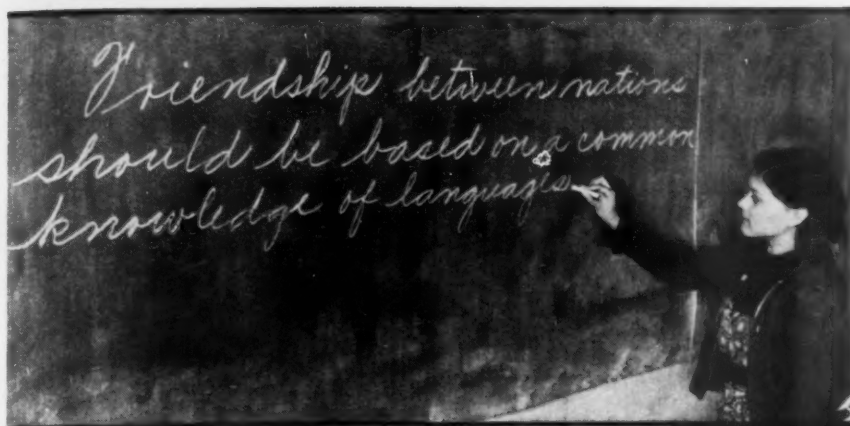 Friendship between nations
should be based on a common
knowledge of languages